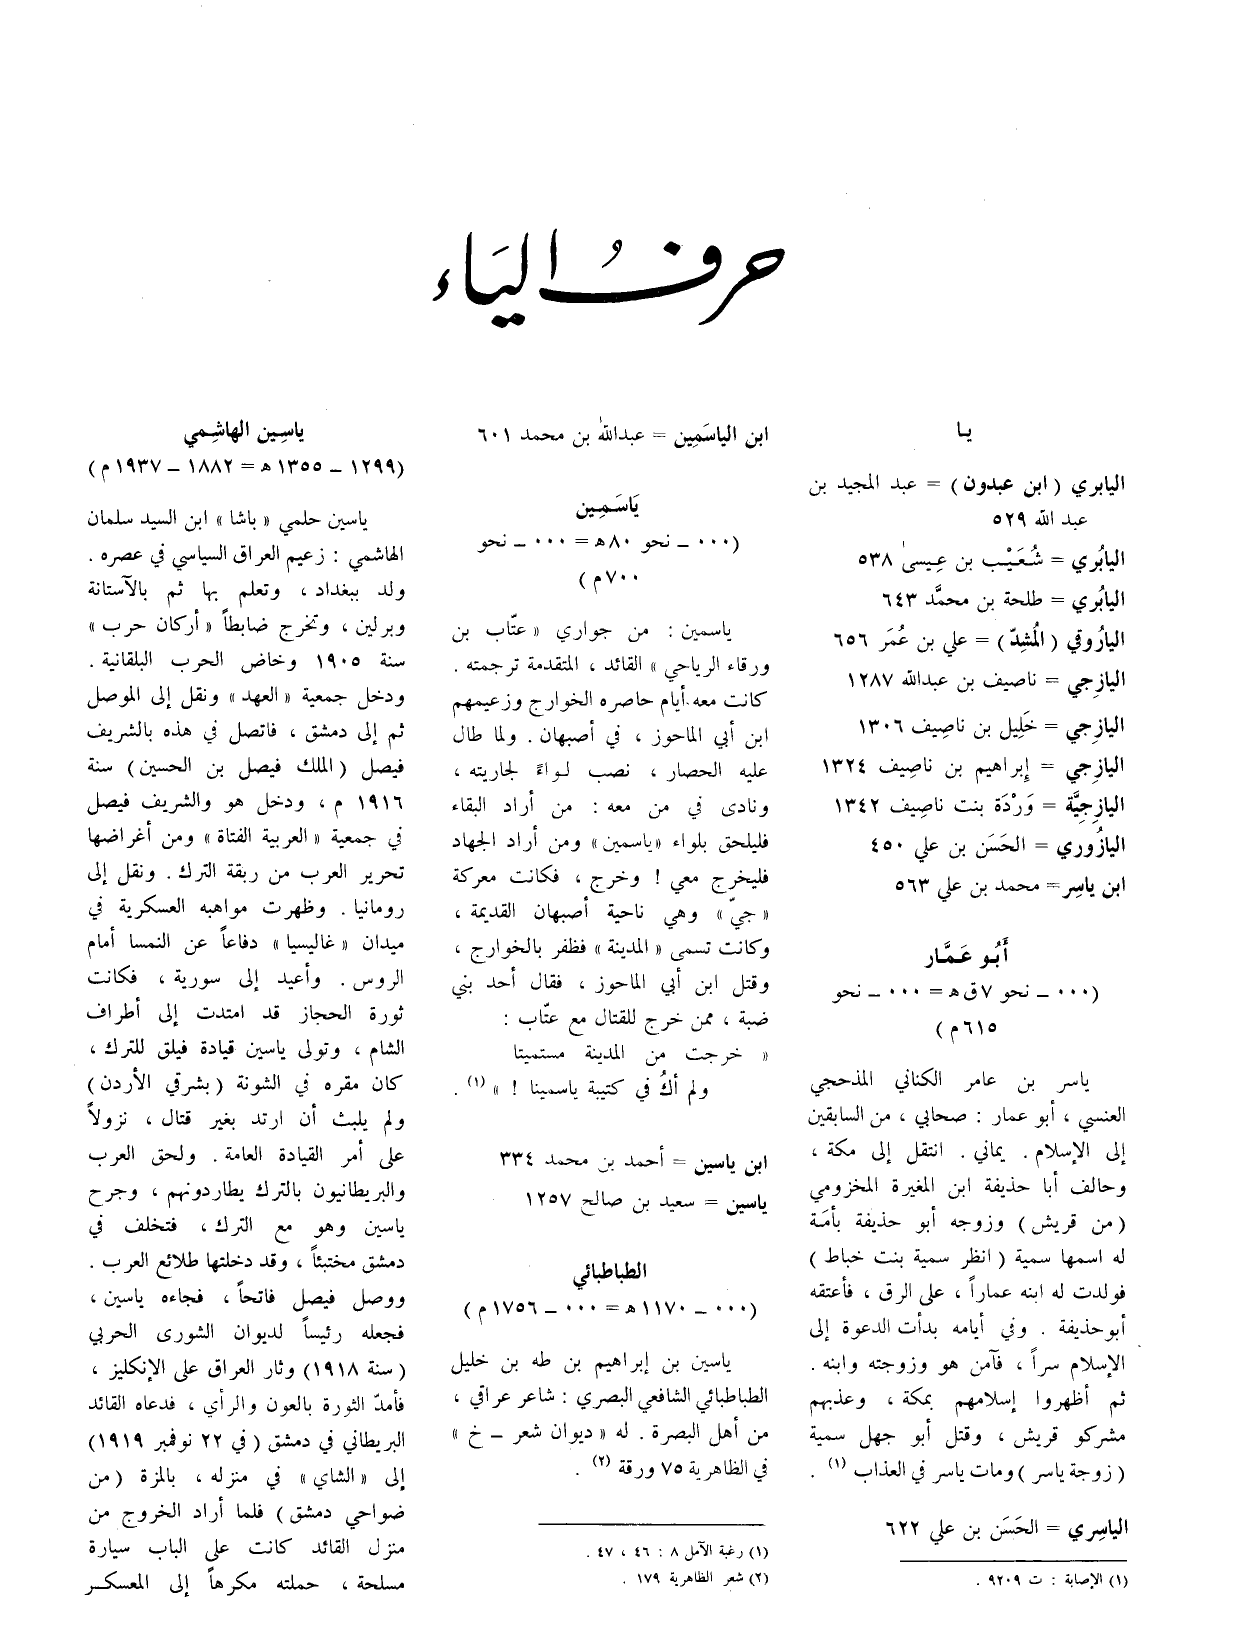 حرفُ اليَاء
يـا
اليابري (ابن عبدون) = عبد المجيد بن
عبد الله ٥٢٩
اليابُري = شُعَيْب بن عِيسىٰ ٥٣٨
اليابُري = طلحة بن محمَّد ٦٤٣
اليارُوقي (المُشِدّ) = علي بن عُمَر ٦٥٦
اليازجي = ناصيف بن عبدالله ١٢٨٧
اليازِجي = خَلِيل بن ناصِيف ١٣٠٦
اليازِجي = إبراهيم بن ناصِيف ١٣٢٤
اليازِجِيَّة = وَرْدَة بنت ناصِيف ١٣٤٢
اليازُوري = الحَسَن بن علي ٤٥٠
ابن ياسِر = محمد بن علي ٥٦٣
أَبُو عَمَّار
(٠٠٠ ــ نحو ٧ق ه = ٠٠٠ ــ نحو
٦١٥م)
ياسر بن عامر الكناني المذحجي
العنسي ، أبو عمار : صحابي ، من السابقين
إلى الإسلام . يماني . انتقل إلى مكة ،
وحالف أبا حذيفة ابن المغيرة المخزومي
(من قريش) وزوجه أبو حذيفة بأمَة
له اسمها سمية (انظر سمية بنت خباط)
فولدت له ابنه عماراً ، على الرق ، فأعتقه
أبوحذيفة . وفي أيامه بدأت الدعوة إلى
الإسلام سراً ، فآمن هو وزوجته وابنه .
ثم أظهروا إسلامهم بمكة ، وعذبهم
مشركو قريش ، وقتل أبو جهل سمية
(زوجة ياسر) ومات ياسر في العذاب (١) .
الياسِري = الحَسَن بن علي ٦٢٢
(١) الإصابة : ت ٩٢٠٩ .
ابن الياسَمِين = عبدالله بن محمد ٦٠١
يَاسَمِين
(٠٠٠ ــ نحو ٨٠ه = ٠٠٠ ــ نحو
٧٠٠م)
ياسمين : من جواري «عتّاب بن
ورقاء الرياحي» القائد ، المتقدمة ترجمته .
كانت معه أيام حاصره الخوارج وزعيمهم
ابن أبي الماحوز ، في أصبهان . ولما طال
عليه الحصار ، نصب لواءً لجاريته ،
ونادى في من معه : من أراد البقاء
فليلحق بلواء «ياسمين» ومن أراد الجهاد
فليخرج معي ! وخرج ، فكانت معركة
«جيّ» وهي ناحية أصبهان القديمة ،
وكانت تسمى «المدينة» فظفر بالخوارج ،
وقتل ابن أبي الماحوز ، فقال أحد بني
ضبة ، ممن خرج للقتال مع عتّاب :
« خرجت من المدينة مستميتا
ولم أكُ في كتيبة ياسمينا ! » (١) .
ابن ياسين = أحمد بن محمد ٣٣٤
ياسين = سعيد بن صالح ١٢٥٧
الطباطبائي
(٠٠٠ ــ ١١٧٠ ه = ٠٠٠ ــ ١٧٥٦ م)
ياسين بن إبراهيم بن طه بن خليل
الطباطبائي الشافعي البصري : شاعر عراقي ،
من أهل البصرة . له «ديوان شعر ــ خ»
في الظاهرية ٧٥ ورقة (٢) .
(١) رغبة الآمل ٨ : ٤٦ ، ٤٧ .
(٢) شعر الظاهرية ١٧٩ .
ياسِين الهاشِمي
(١٢٩٩ ــ ١٣٥٥ ه = ١٨٨٢ ــ ١٩٣٧ م)
ياسين حلمي «باشا» ابن السيد سلمان
الهاشمي : زعيم العراق السياسي في عصره .
ولد ببغداد ، وتعلم بها ثم بالآستانة
وبرلين ، وتخرج ضابطاً «أركان حرب»
سنة ١٩٠٥ وخاض الحرب البلقانية .
ودخل جمعية «العهد» ونقل إلى الموصل
ثم إلى دمشق ، فاتصل في هذه بالشريف
فيصل (الملك فيصل بن الحسين) سنة
١٩١٦ م ، ودخل هو والشريف فيصل
في جمعية «العربية الفتاة» ومن أغراضها
تحرير العرب من ربقة الترك . ونقل إلى
رومانيا . وظهرت مواهبه العسكرية في
ميدان «غاليسيا» دفاعاً عن النمسا أمام
الروس . وأعيد إلى سورية ، فكانت
ثورة الحجاز قد امتدت إلى أطراف
الشام ، وتولى ياسين قيادة فيلق للترك ،
كان مقره في الشونة (بشرقي الأردن)
ولم يلبث أن ارتد بغير قتال ، نزولاً
على أمر القيادة العامة . ولحق العرب
والبريطانيون بالترك يطاردونهم ، وجرح
ياسين وهو مع الترك ، فتخلف في
دمشق مختبئاً ، وقد دخلتها طلائع العرب .
ووصل فيصل فاتحاً ، فجاءه ياسين ،
فجعله رئيساً لديوان الشورى الحربي
(سنة ١٩١٨) وثار العراق على الإنكليز ،
فأمدّ الثورة بالعون والرأي ، فدعاه القائد
البريطاني في دمشق (في ٢٢ نوفمبر ١٩١٩)
إلى «الشاي» في منزله ، بالمزة (من
ضواحي دمشق) فلما أراد الخروج من
منزل القائد كانت على الباب سيارة
مسلحة ، حملته مكرهاً إلى المعسكر